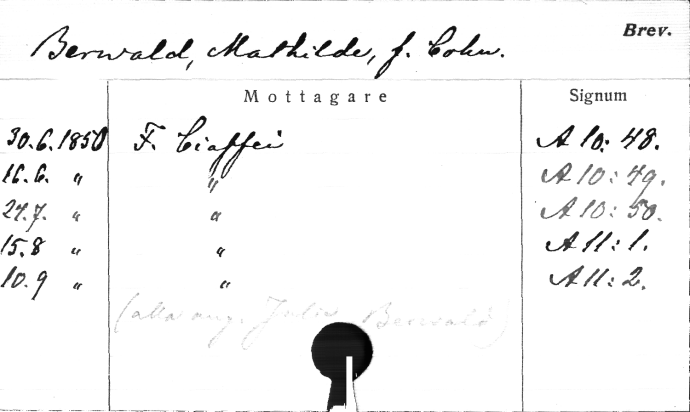 Brev.
Berwald, Mathilde, f. Cohn.
Mottagare Signum
30.6.1850 F. Ciaffei A 10: 48.
16.6. " " A 10: 49.
24.7. " " A 10: 50.
15.8 " " A 11: 1.
10.9 " " A 11: 2.
(alla ang. Julie Berwald)